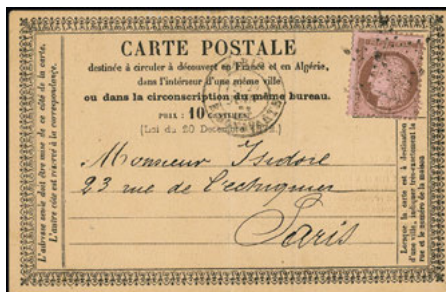 CARTE POSTALE
destinée à circuler à découvert en France et en Algérie,
dans l'intérieur d'une même ville
ou dans la circonscription du même bureau.
PRIX : 10 CENTIMES
[Loi du 20 Décembre 1872.]
Monsieur Isidore
23 rue de l'echiquier
Paris
L'adresse seule doit être mise de ce côté de la carte.
L'autre côté est réservé à la correspondance.
Lorsque la carte est à destination
d'une ville, indiquer très-exactement la
rue et le numéro de la maison